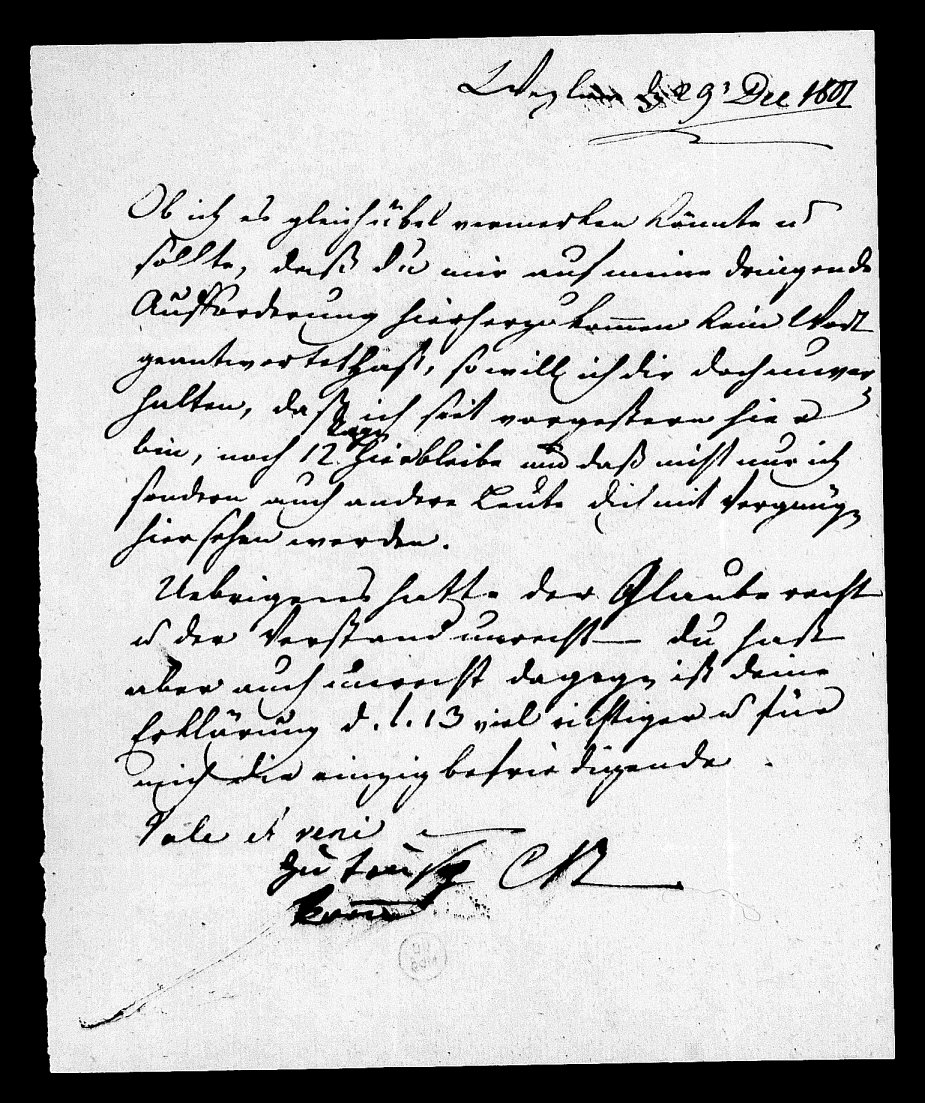 Wezlar d 29' Dec 1801
Ob ich es gleich übel vermerken könnte u
sollte, daß du mir auf meine dringende
Aufforderung hierherzukommen kein Wort
geantwortet hast, so will ich dir doch unver
halten, daß ich seit vorgestern hier
bin, noch 12 Tage hierbleibe und daß nicht nur ich
sondern auch andere Leute dich mit Vergnüg
hier sehen werden.
Uebrigens hatte der Glaube recht
u der Verstand unrecht — du hast
aber auch unrecht dageg ist deine
Erklärung d. l. 13 viel richtiger u für
mich die einzig befriedigende.
Vale et veni